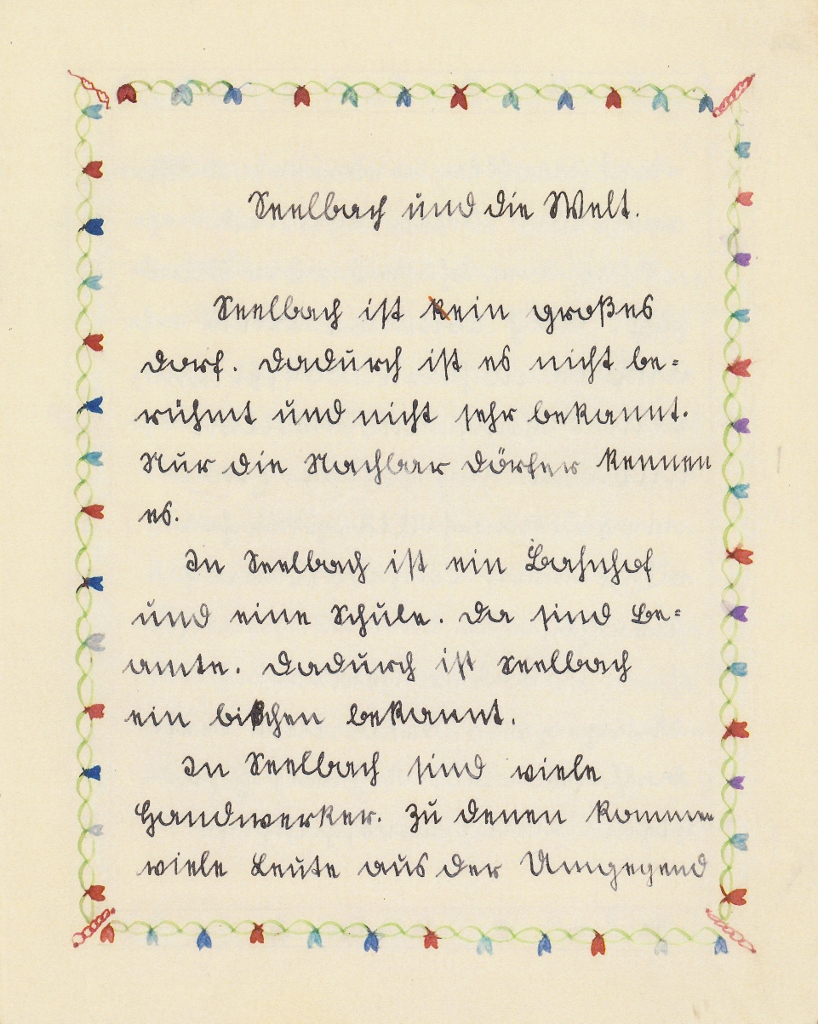 Seelbach und die Welt.
Seelbach ist kein großes
Dorf. Dadurch ist es nicht be=
rühmt und nicht sehr bekannt.
Nur die Nachbar Dörfer kennen
es.
In Seelbach ist ein Bahnhof
und eine Schule. Da sind Be=
amte. Dadurch ist Seelbach
ein bißchen bekannt.
In Seelbach sind viele
Handwerker. Zu denen kommen
viele Leute aus der Umgegend